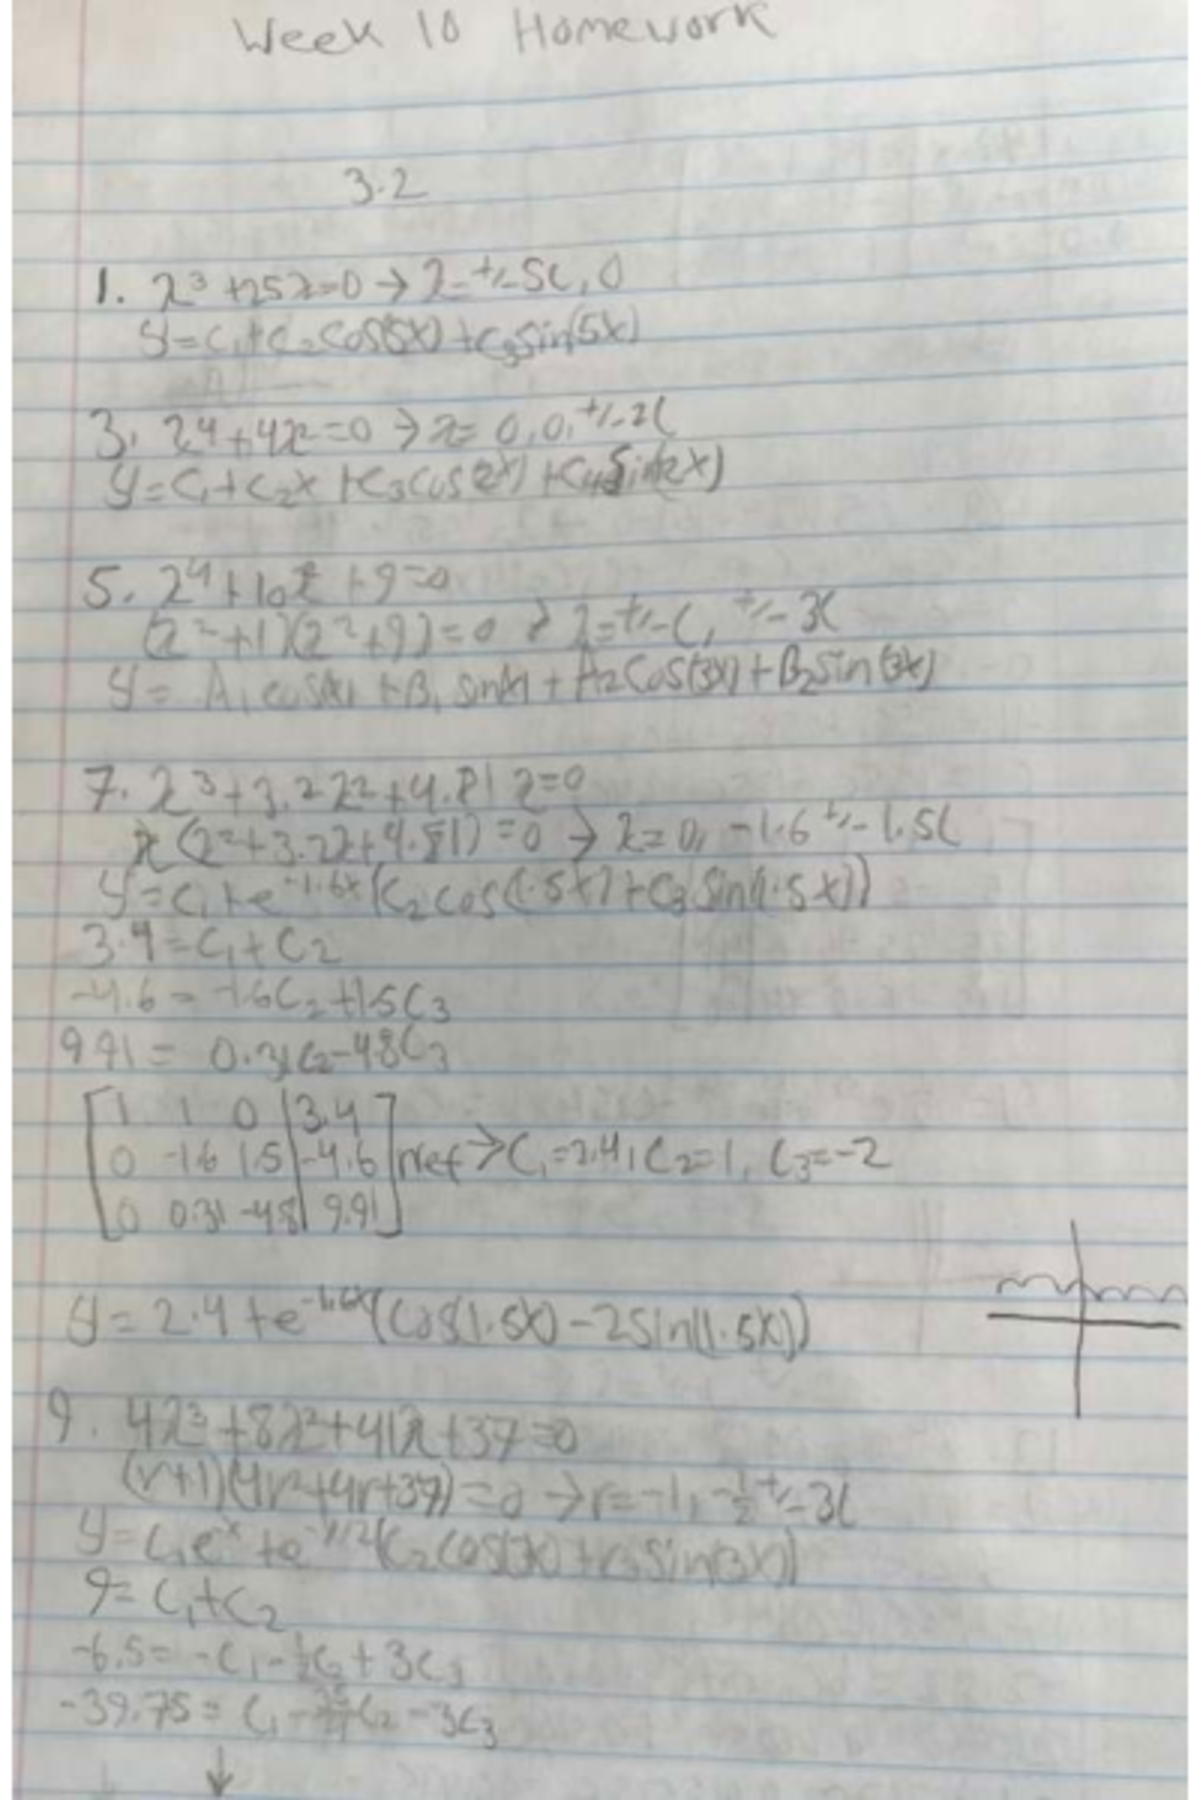 Week 10 Homework
3.2
1. λ³ + 25λ = 0 → λ = +/- 5i, 0
y = C₁ + C₂cos(5x) + C₃sin(5x)
3. λ⁴ + 4λ² = 0 → λ = 0, 0, +/- 2i
y = C₁ + C₂x + C₃cos(2x) + C₄sin(2x)
5. λ⁴ + 10λ² + 9 = 0
(λ² + 1)(λ² + 9) = 0 → λ = +/- i, +/- 3i
y = A₁cos(x) + B₁sin(x) + A₂cos(3x) + B₂sin(3x)
7. λ³ + 3.2λ² + 4.81λ = 0
λ(λ² + 3.2λ + 4.81) = 0 → λ = 0, -1.6 +/- 1.5i
y = C₁ + e^-1.6x(C₂cos(1.5x) + C₃sin(1.5x))
3.4 = C₁ + C₂
-4.6 = -1.6C₂ + 1.5C₃
9.91 = 0.31C₂ - 4.8C₃
[1 1 0 | 3.4]
[0 -1.6 1.5 | -4.6] rref → C₁ = 2.4, C₂ = 1, C₃ = -2
[0 0.31 -4.8 | 9.91]
y = 2.4 + e^-1.6x(cos(1.5x) - 2sin(1.5x))
9. 4λ³ + 8λ² + 41λ + 37 = 0
(r+1)(4r² + 4r + 37) = 0 → r = -1, -1/2 +/- 3i
y = C₁e^-x + e^-x/2(C₂cos(3x) + C₃sin(3x))
9 = C₁ + C₂
-6.5 = -C₁ - 1/2C₂ + 3C₃
-39.75 = C₁ - 35/4C₂ - 3C₃
↓